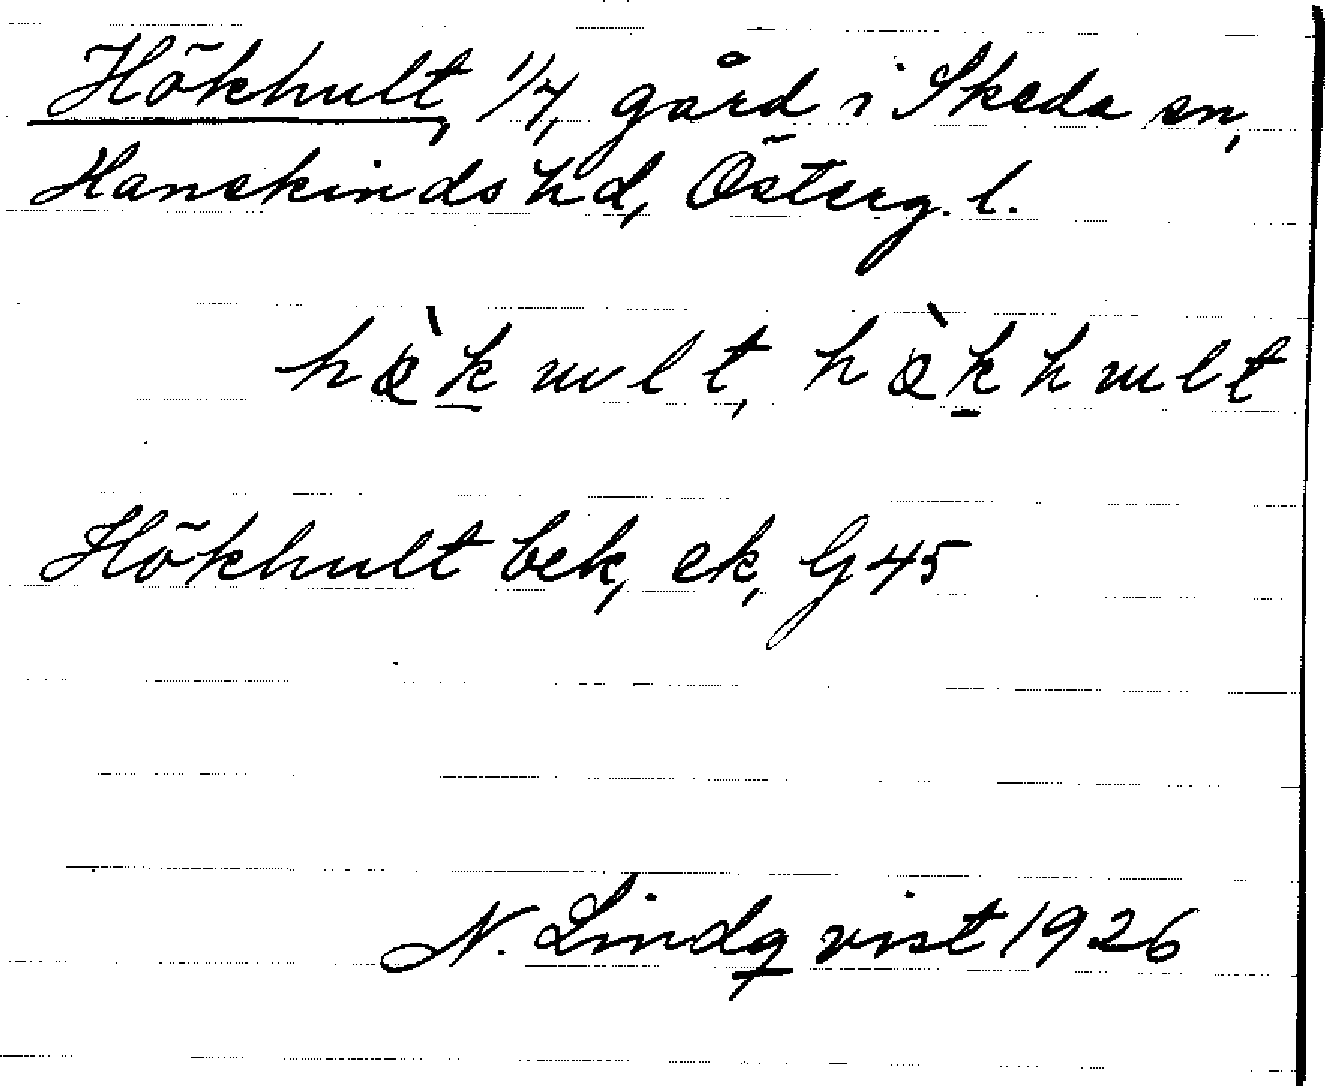 Hökhult, 1/4, gård i Skeda sn,
Hanekinds hd, Österg. l.
hø̀kult, hø̀khult
Hökhult bek, ek, G 45
N. Lindqvist 1926